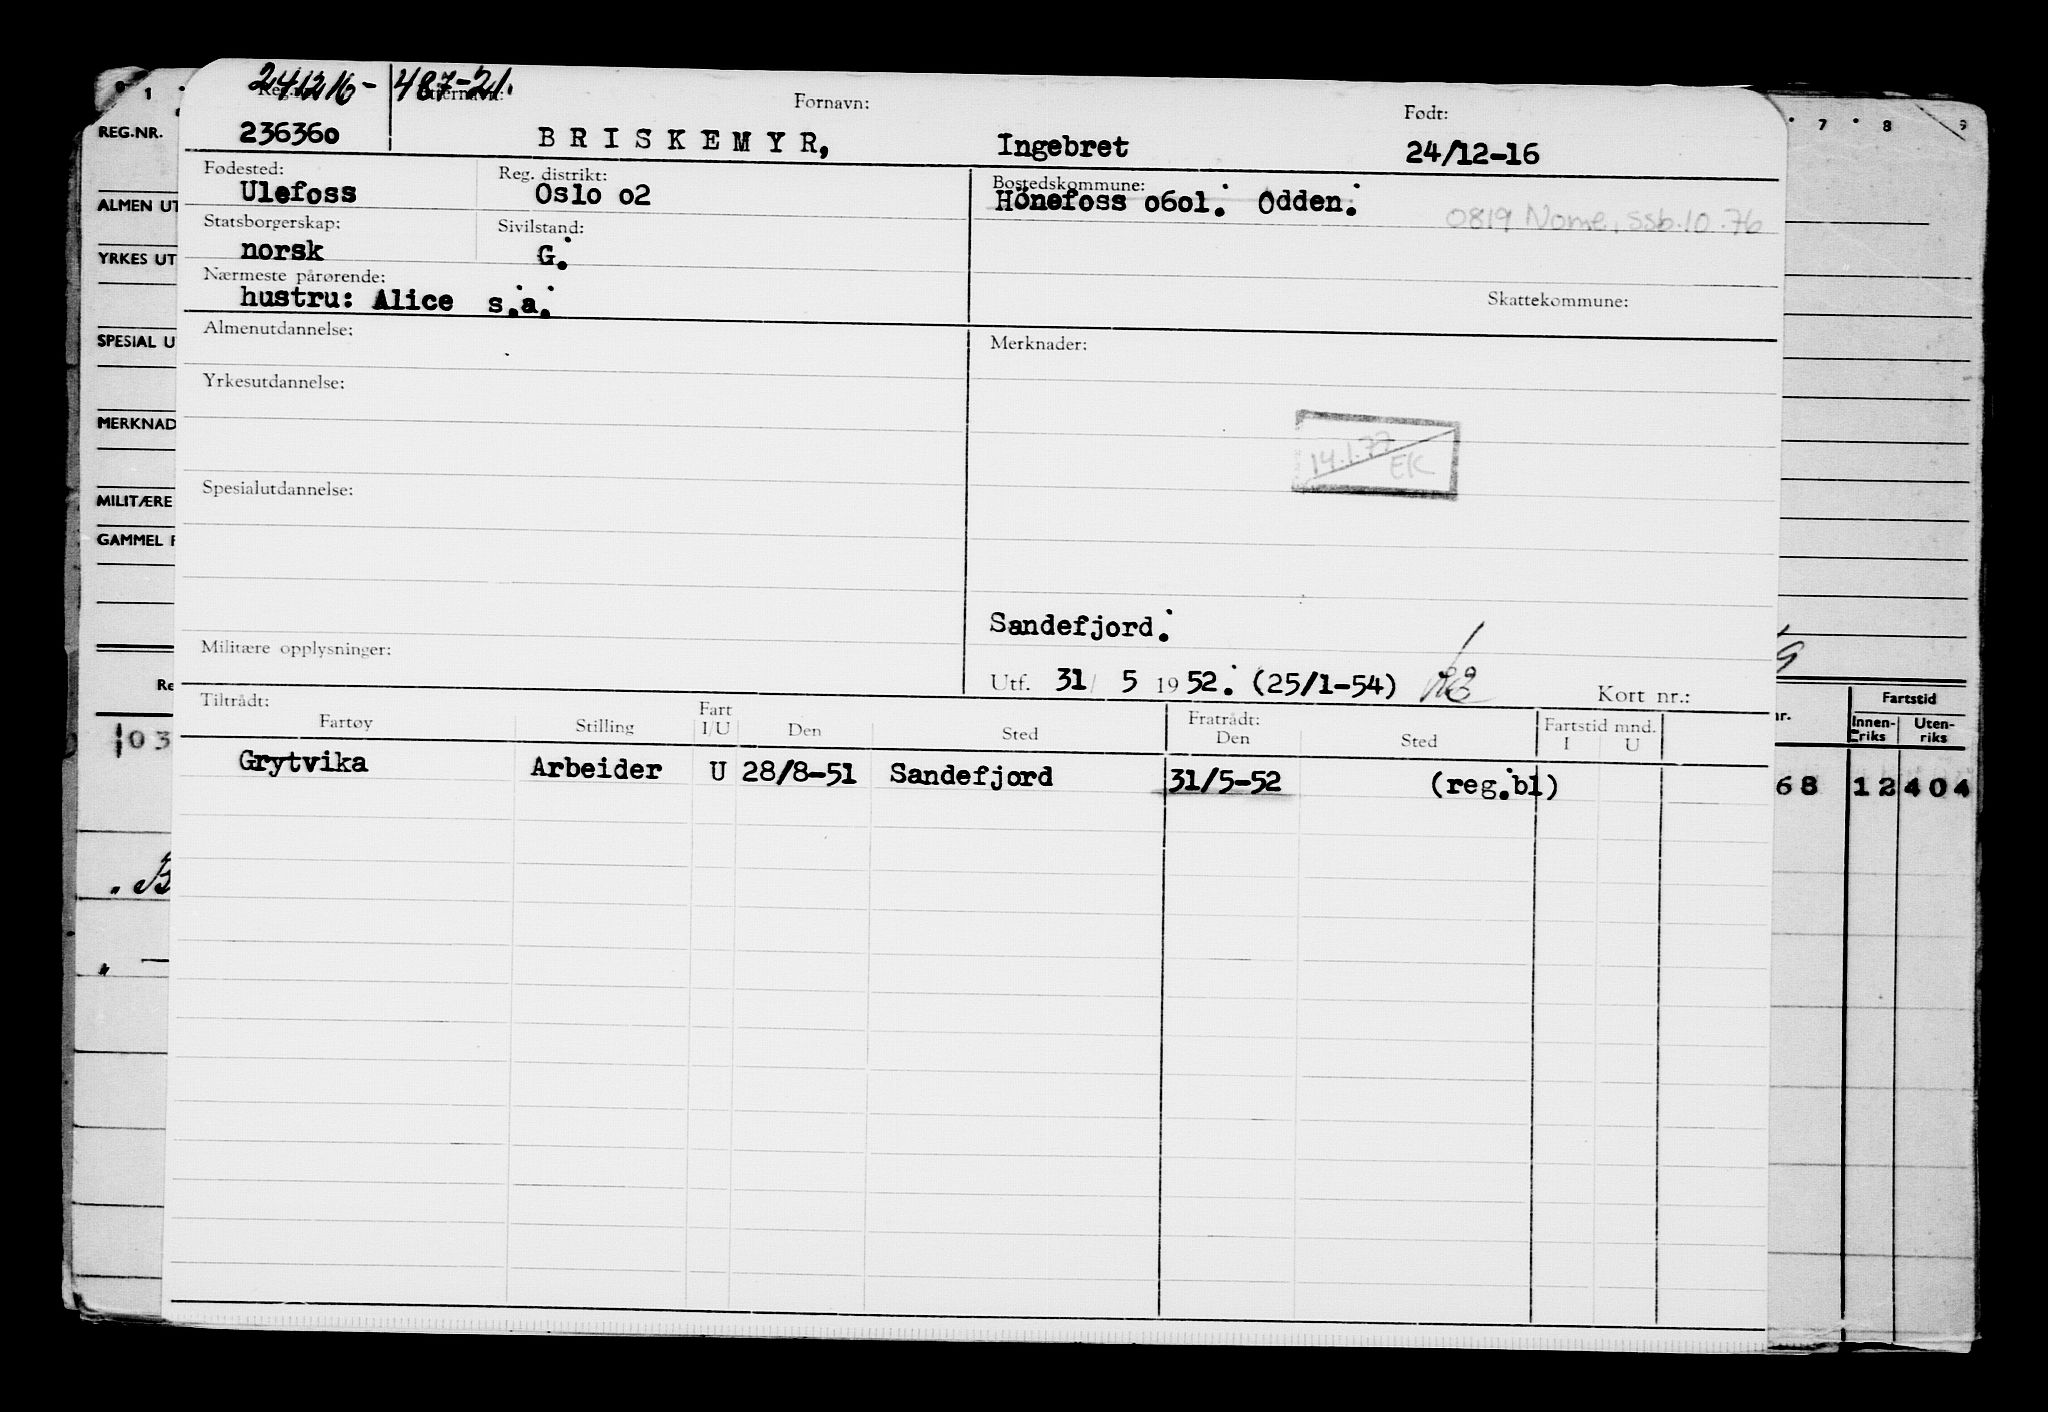 241216-487-21.
Fornavn:
Født:
REG.NR.
236360
BRISKEMYR,
Ingebret
24/12-16
Fødested:
Reg. distrikt:
Bostedskommune:
Ulefoss
Oslo o2
Hönefoss o6o1. Odden.
0819 Nome, ssb.10.76
ALMEN UT
Statsborgerskap:
Sivilstand:
norsk
G.
YRKES UT
Nærmeste pårørende:
hustru: Alice s.a.
Skattekommune:
Almenutdannelse:
Merknader:
SPESIAL U
Yrkesutdannelse:
MERKNAD
14.1.77 EK
Spesialutdannelse:
MILITÆRE
GAMMEL F
Sandefjord.
Militære opplysninger:
Utf. 31/ 5 1952. (25/1-54)
Kort nr.:
Re
Tiltrådt:
Fratrådt:
Fartøy
Stilling
Fart I/U
Den
Sted
Den
Sted
Fartstid mnd.
I U
nr.
Fartstid
Innen-riks
Uten-riks
Grytvika
Arbeider
U
28/8-51
Sandefjord
31/5-52
(reg.bl)
03
68
12
404